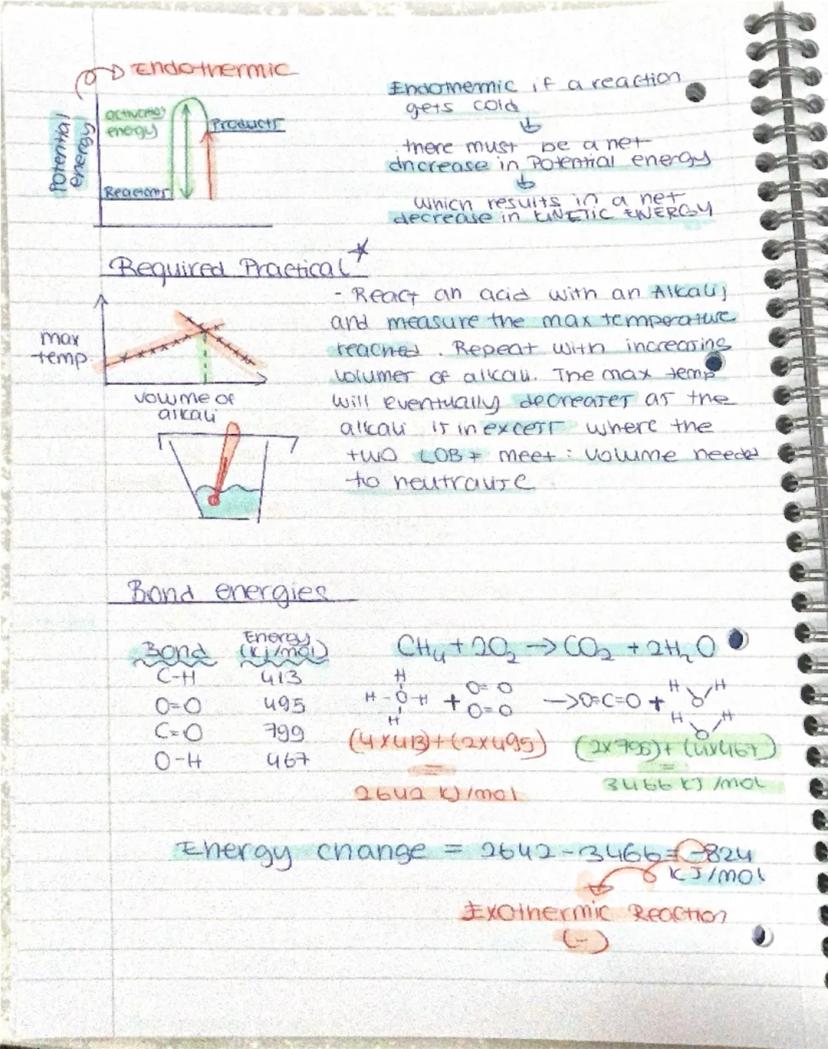 Endothermic
Potential energy
activation energy
Products
Reactants
Endothermic if a reaction
gets cold
↓
there must be a net
increase in Potential energy
↓
which results in a net
decrease in KINETIC ENERGY
Required Practical*
max
temp
volume of
alkali
- React an acid with an Alkali,
and measure the max temperature
reached. Repeat with increasing
volumes of alkali. The max temp
will eventually decreases as the
alkali is in excess where the
two LOB+ meet: volume needed
to neutralise
Bond energies
Bond Energy (KJ/mol)
C-H 413
O=O 495
C=O 799
O-H 467
CH₄ + 2O₂ → CO₂ + 2H₂O
H
H - O - H
H
+
O=O
O=O
→ O=C=O +
H O H
H O H
(4x413)+(2x495)
=
2642 KJ/mol
(2x799)+(4x467)
=
3466 KJ/mol
Energy change = 2642-3466=-824
KJ/mol
Exothermic Reaction
(-)